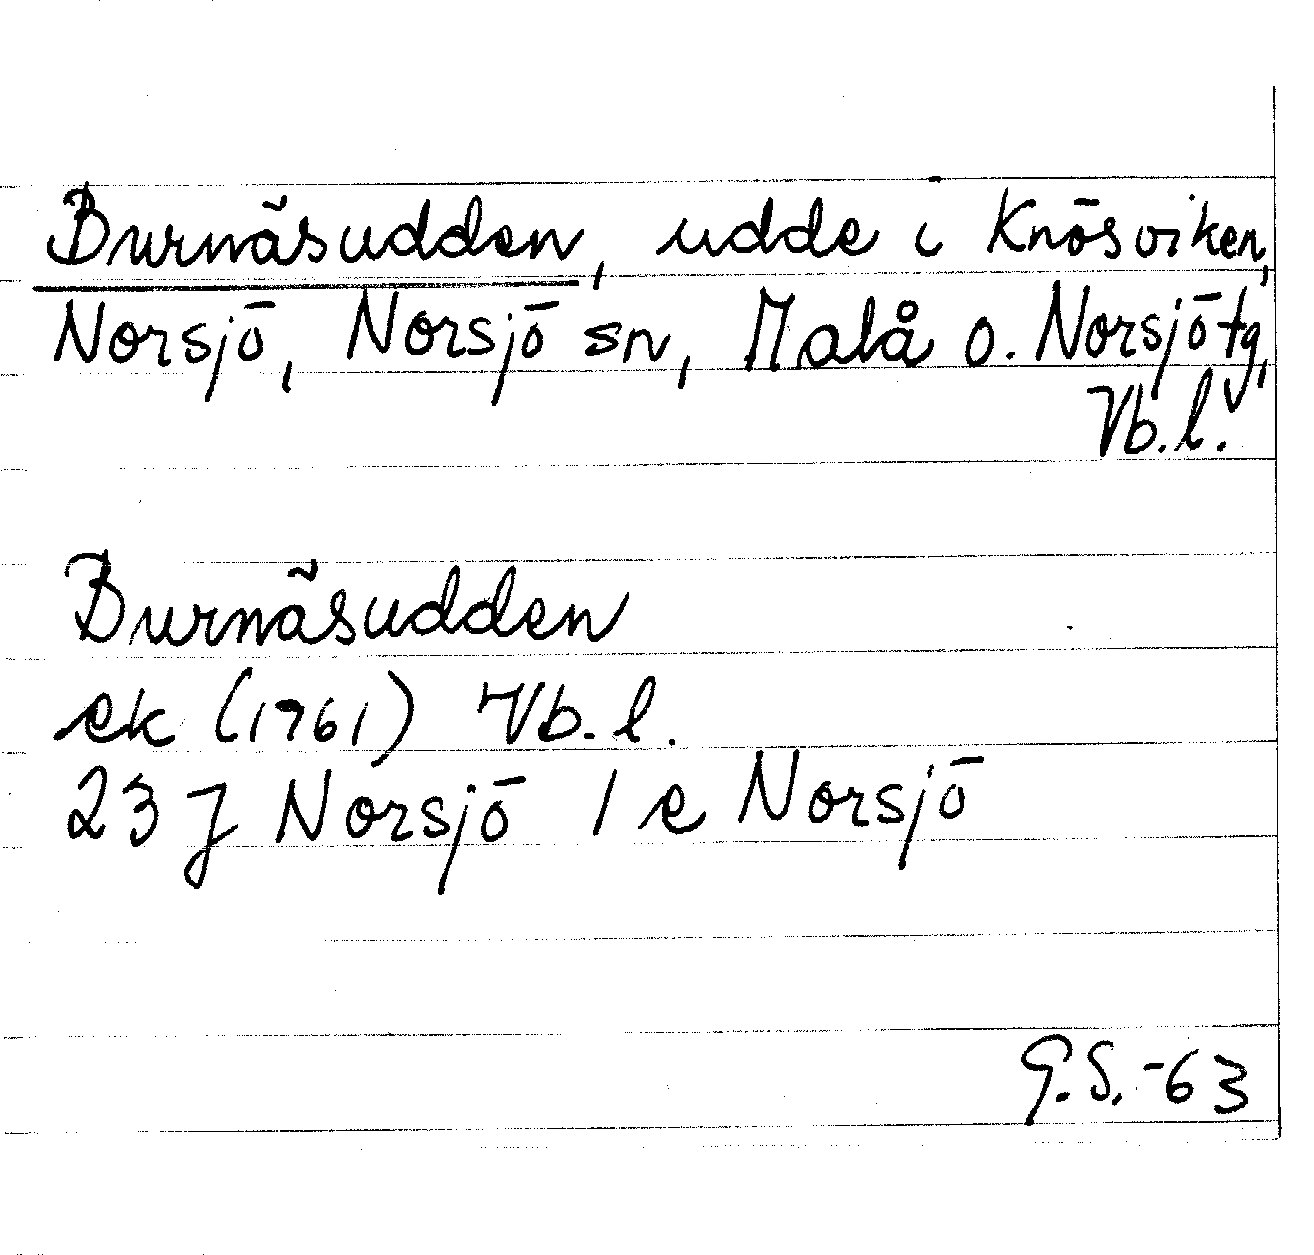 Burnäsudden, udde i Knösviken,
Norsjö, Norsjö sn, Malå o. Norsjö tg,
Vb.l.
Burnäsudden
ek (1761) Vb.l.
23 J Norsjö 1 e Norsjö
G.S. -63